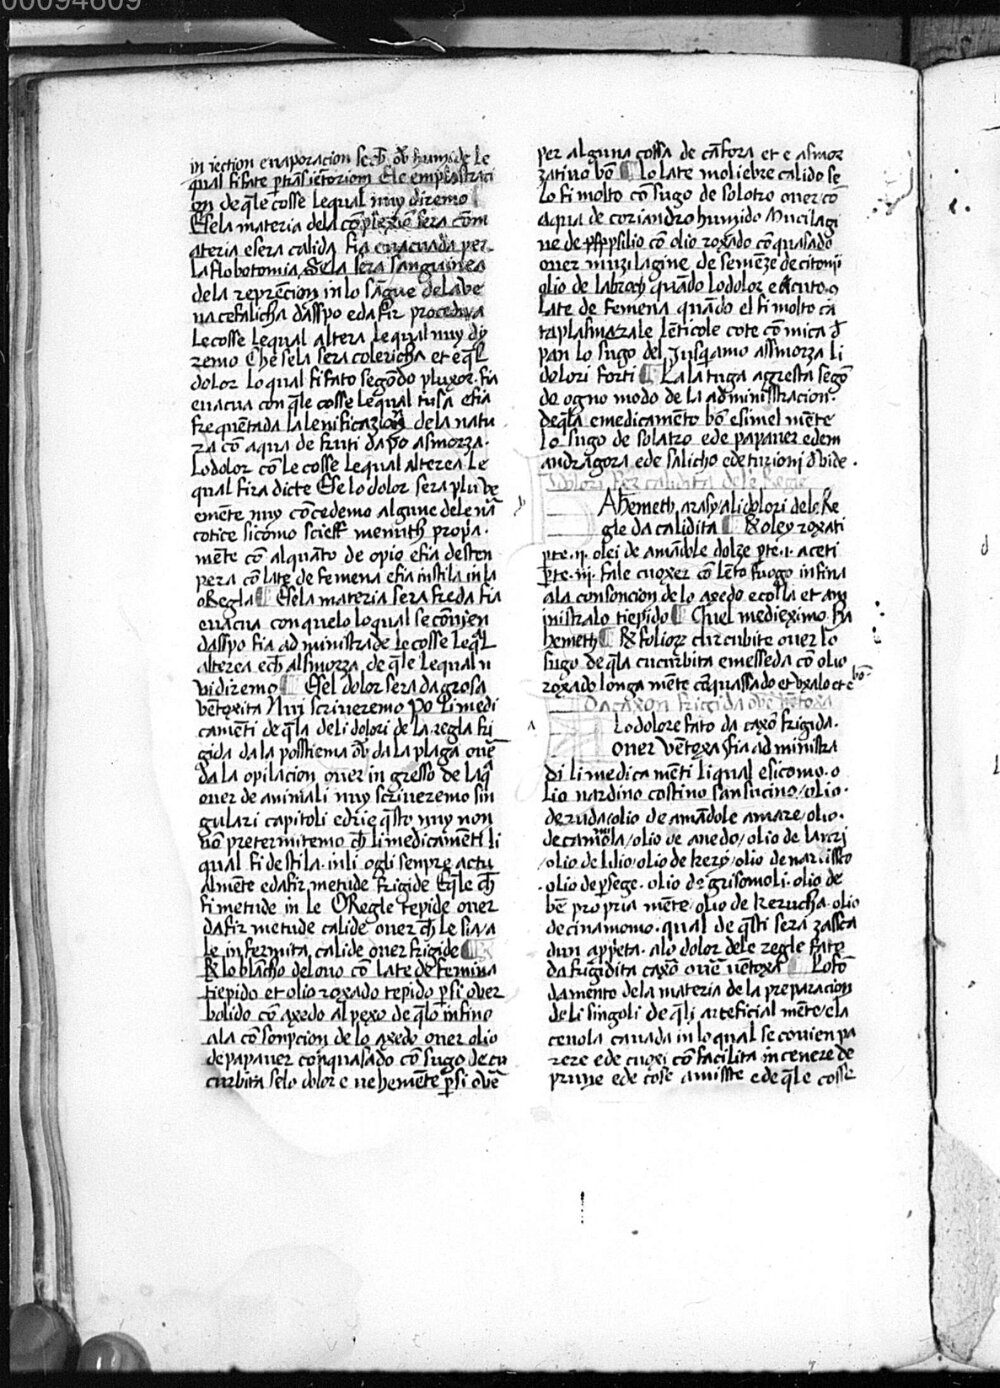 00094609
in iection euaporacion secħ oƀ humide le
qual fi fate ptransietoriom Ele empiastraci
on de qͣle cosse le qual nuy diremo
E se la materia dela cōplexiōe sera cōm
ateria e sera calida fia euacuada per
la flobotomia, Se la sera sanguinea
dela reprēcion in lo sāgue dela ve
na cefalicha dasspo e da fir procediua
le cosse le qual altera le qual nuy dy
remo Che se la sera colericha et e qͣl
dolor lo qual fi fato segōdo pluxor fia
euacua con qͣle cosse le qual tusa e fia
frequētada la lenificaziōn de la natu
ra cō aqua de fruti da pͦo asmorza.
Lo dolor cō le cosse le qual alterea le
qual fira dicte E se lo dolor sera plu ve
emēte nuy cōcedemo algune dele nar
cotice si como scieff memith propia.
mēte cō alquāto de opio e fia desten
pera cō late de femena e fia instila in la
oRegla ¶ E se la materia sera freda fia
euacua con quelo lo qual se cōuien
dasspo fia administrade le cosse le qͣl
alterea ecħ asmorza, de qͣle le qual n
ui diremo ¶ E sel dolor sera da grosa
vētoxita Nui scriueremo Po li medi
camēti de qͣla deli dolori de la regla fri
gida da la posstiema oƀ da la plaga ouē
da la opilacion ouer in gresso de laqͣ
ouer de animali nuy scriueremo sin
gulari capitoli e drie qͣsto nuy non
vō pretermitemo cħ li medicamēti li
qual fi destila in li ogli sempre actu
almēte e da fir metude frigide E qͣle cħ
fi metude in le ORegle tepide ouer
da fir metude calide ouer cħ le sia, a
le infermita, calide ouer frigide ¶
℞ lo blācho del ouo cō late de femina
tiepido et olio roxado tepido psi ouer
bolido cō axedo al pexo de qͣlo infino
ala cō sonpcion de lo axedo ouer olio
de papauer conquasado cō sugo de cu
curbita se lo dolor e uehemēte psi ouē
per alguna cossa de cāfora et e asmor
zatiuo bō ¶ Lo late moliebre calido se
lo fi molto cō sugo de solotro ouer cō
aqua de coriandro humido Mucilagi
ne de psipsilio cō olio roxado cōquasado
ouer muzilagine de semēze de citonij
olio de labroch quādo lo dolor e acuto. o
late de femena quādo el fi molto ca
taplasmazale lēticole cote cō mica đ
pan lo sugo del Jusqiamo assmorza li
dolori forti ¶ La latuga agresta segō
de ogno modo de la administracion.
de qͣla e medicamēto bō e simel mēte
lo sugo de solatro e de papauer e dem
andragora e de salicho e de turioni đ vide.
Dolori per calidita dele Regle
Ahemeth, arasy, ali dolori dele Re
gle da calidita ¶ ℞ oley roxati
pte .ij. olei de amādole dolze pte .i. aceti
pte .iij. fale cuoxer cō lēto fuogo infina
ala consoncion de lo axedo e colla et am
inistralo tiepido ¶ Quel medieximo Ra
hemeth ¶ ℞ foliorz cucurbite ouer lo
sugo de qͣla cucurbita e messeda cō olio
roxado longa mēte cōquassado et vxalo et e bō
Da caxon frigida ouē vētoxa
Lo dolore fato da caxō frigida.
ouer vētoxa, fia administra
di li medicamēti li qual e si como. o
lio nardino costino sansucino/olio.
de ruda/olio de amādole amare/olio.
de camōla/olio de anedo/olio de laurj
/olio de lilio/olio de kerj/olio de narcisso
.olio de psege. olio de grisomoli. olio de
bē propria mēte/olio de kerucha. olio
de cinamomo. qual de qͣsti sera zasseta
dun appeta. alo dolor dele regle fate
da frigidita caxō ouē uētoxa ¶ Lo fō
damento dela materia de la preparacion
deli singoli de qͣli arteficial mēte/e la
ceuola cauada in lo qual se couien pa
rere e de cuoxi cō facilita in cenere de
prune e de cose amisste e de qͣle cosse